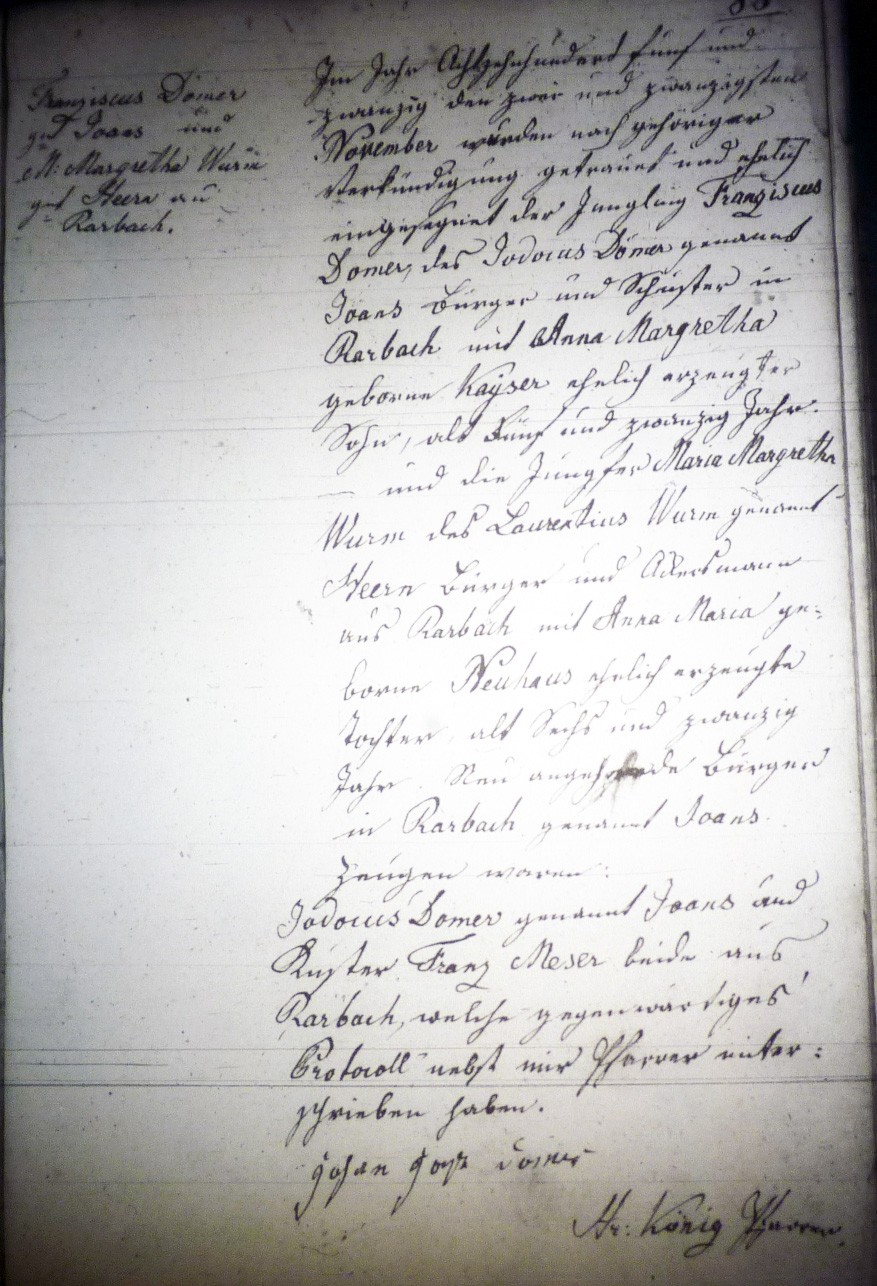 Franziscus Dömer
gt Joans und
M. Margretha Wurm
gt Heern aus
Rarbach.
Im Jahr Achtzehnhundert fünf und
zwanzig den zwei und zwanzigsten
November wurden nach gehöriger
Verkündigung getrauet und ehelich
eingesegnet der Jüngling Franziscus
Dömer, des Jodocus Dömer genannt
Joans Bürger und Schuster in
Rarbach mit Anna Margretha
geborne Kayser ehelich erzeugter
Sohn, alt Fünf und zwanzig Jahr.
— und die Jungfer Maria Margretha
Wurm des Laurentius Wurm genannt
Heern Bürger und Ackersmann
aus Rarbach mit Anna Maria ge:
borne Neuhaus ehelich erzeugte
Tochter, alt Sechs und zwanzig
Jahr. Neu angehende Bürger
in Rarbach genannt Joans.
Zeugen waren:
Jodocus Domer genannt Joans und
Küster Franz Meser beide aus
Rarbach, welche gegenwärtiges
Protocoll nebst mir Pfarrer unter:
schrieben haben.
Johan Jost Domer
König Pfarrer.